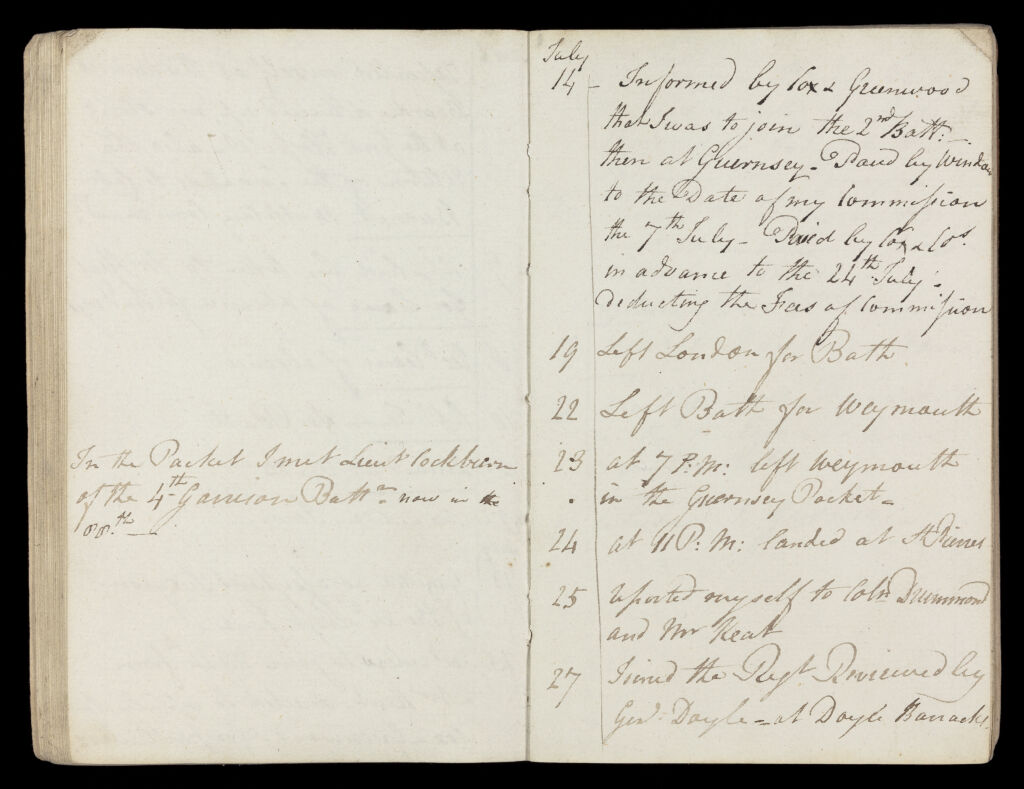 In the Packet I met Lieut Cockburn
of the 4th Garrison Battn now in the
88th
July
14 - Informed by Cox & Greenwood
that I was to join the 2nd Batt:
then at Guernsey - Paid by Windau
to the Date of my Commission
the 7th July - Paied by Cox & Cos.
in advance to the 24th July -
deducting the Fees of Commission
19 Left London for Bath
22 Left Bath for Weymouth
23 at 7 P:M: left Weymouth
in the Guernsey Packet -
24 at 11 P:M: landed at St Pierres
25 reported myself to Coln Drummond
and Mr Keat
27 Joined the Regt Reviewed by
Genl. Doyle - at Doyle Barracks